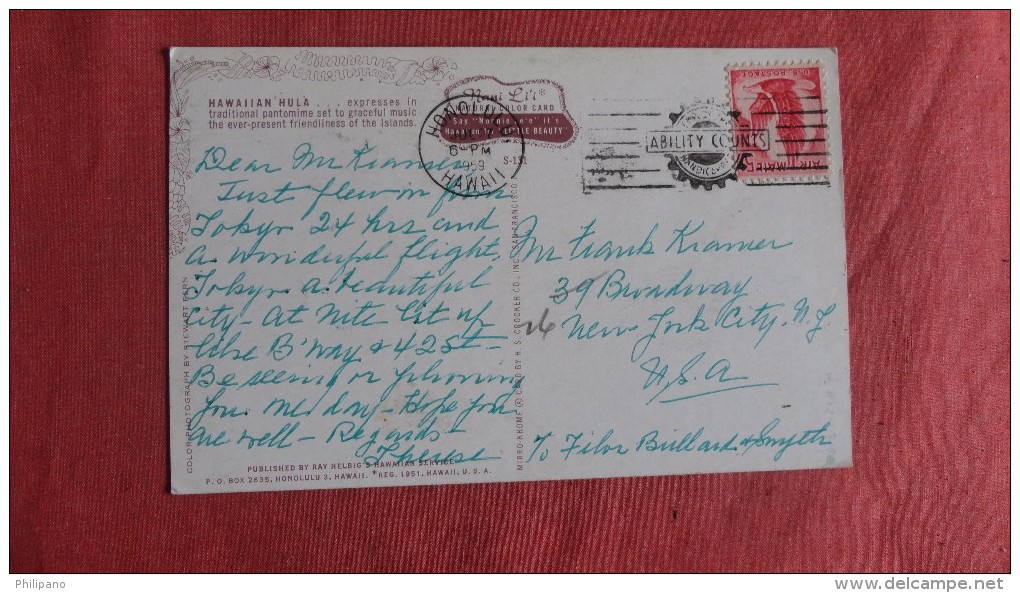 HAWAIIAN HULA . . . expresses in
traditional pantomime set to graceful music
the ever-present friendliness of the Islands.
Nani Li'i®
NATURAL COLOR CARD
Hawaiian for "LITTLE BEAUTY"
S-131
HONOLULU
6 - PM
1959
HAWAII
ABILITY COUNTS
U.S. POSTAGE
AIR MAIL
Dear Mr Kramer
Just flew in from
Tokyo 24 hrs and
a wonderful flight.
Tokyo a beautiful
City - At Nite lit up
like B'way & 42 St -
Be seeing or phoning
you one day - Hope you
are well - Regards
Therese
Mr Frank Kramer
39 Broadway
26 New York City. N.Y
U.S.A
% Filor Bullard & Smyth
COLOR PHOTOGRAPH BY STEWART FERN
MIRRO-KROME ® CARD BY H. S. CROCKER CO., INC., SAN FRANCISCO
PUBLISHED BY RAY HELBIG'S HAWAIIAN SERVICE
P. O. BOX 2835, HONOLULU 3, HAWAII. *REG. 1951, HAWAII, U. S. A.
Philipano
delcampe.net